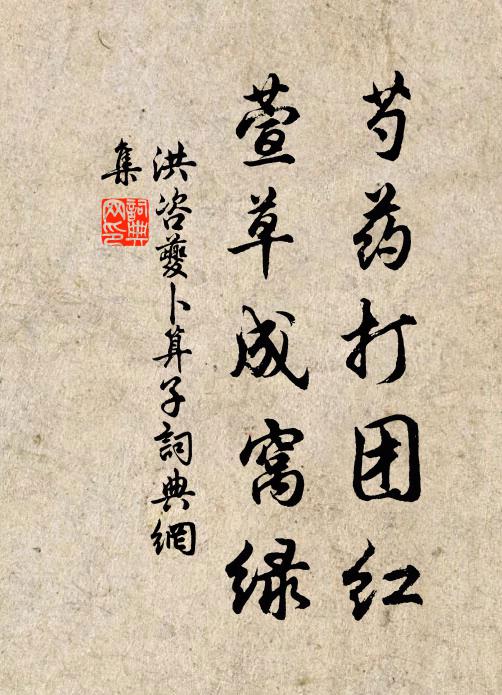 芍药打团红
萱草成窝绿
洪咨夔卜算子詞典網
集
詞典
网印